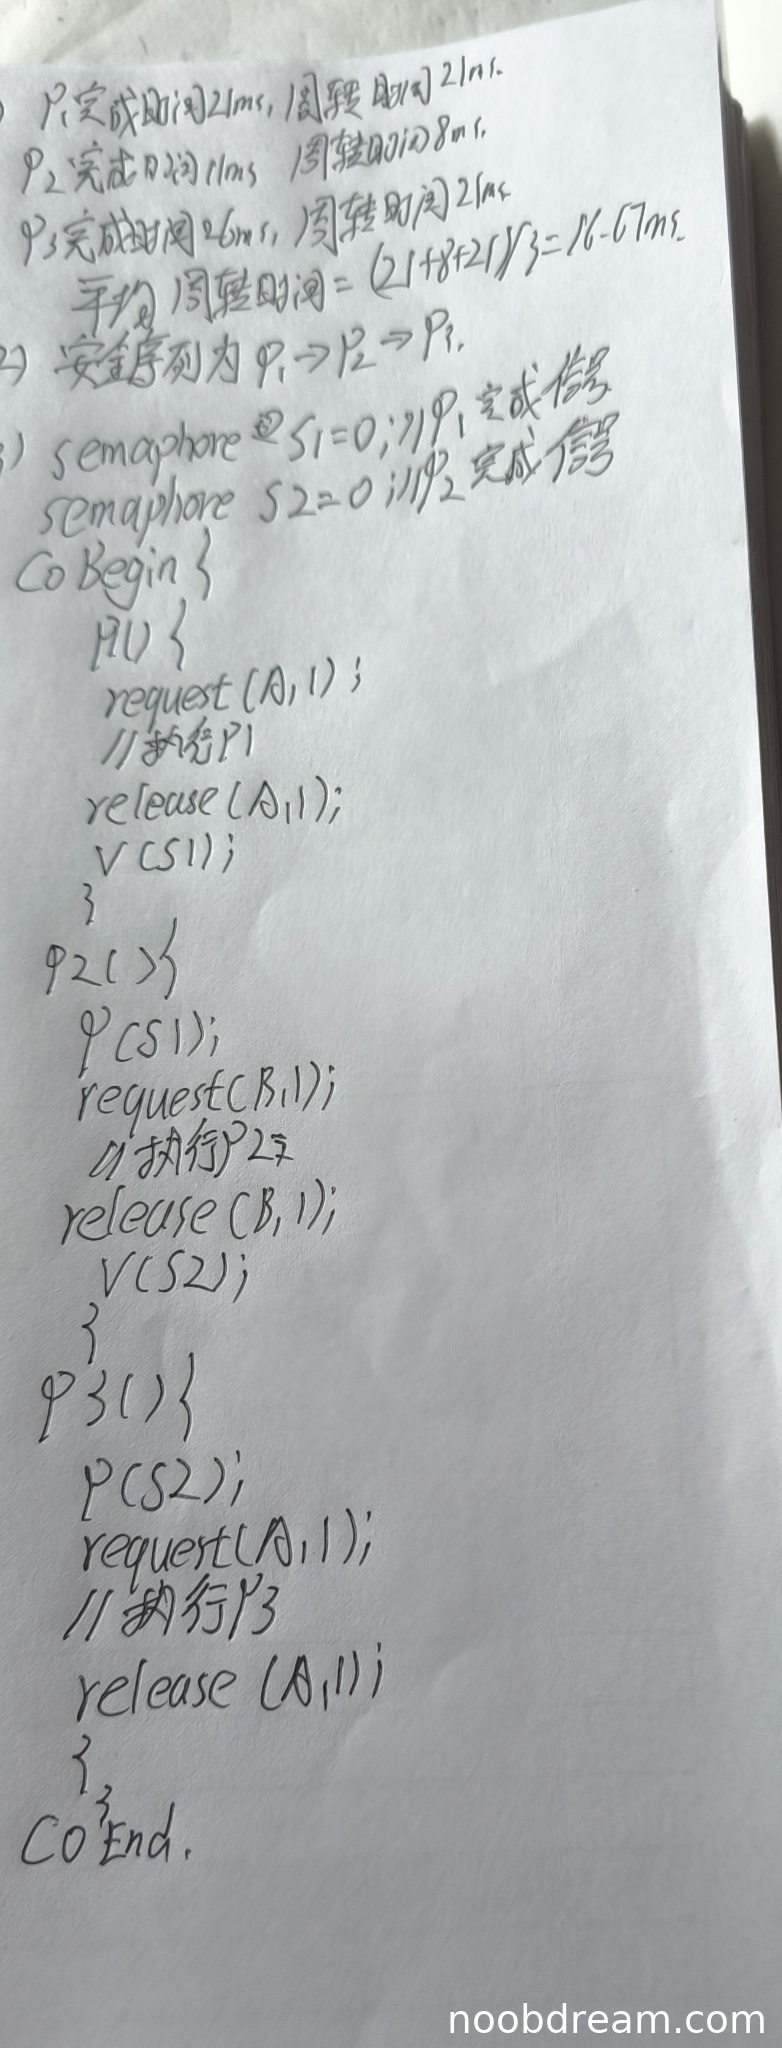 ) P₁完成时间21ms, 周转时间21ms.
P₂完成时间11ms 周转时间8ms.
P₃完成时间26ms, 周转时间21ms
平均周转时间=(21+8+21)/3=16.67ms.
2) 安全序列为P₁→P₂→P₃.
3) semaphore S1=0;//P₁完成信号
semaphore S2=0;//P₂完成信号
CoBegin{
P1(){
request(A,1);
//执行P1
release(A,1);
V(S1);
}
P2(){
P(S1);
request(B,1);
//执行P2
release(B,1);
V(S2);
}
P3(){
P(S2);
request(A,1);
//执行P3
release(A,1);
}
}
CoEnd.
noobdream.com